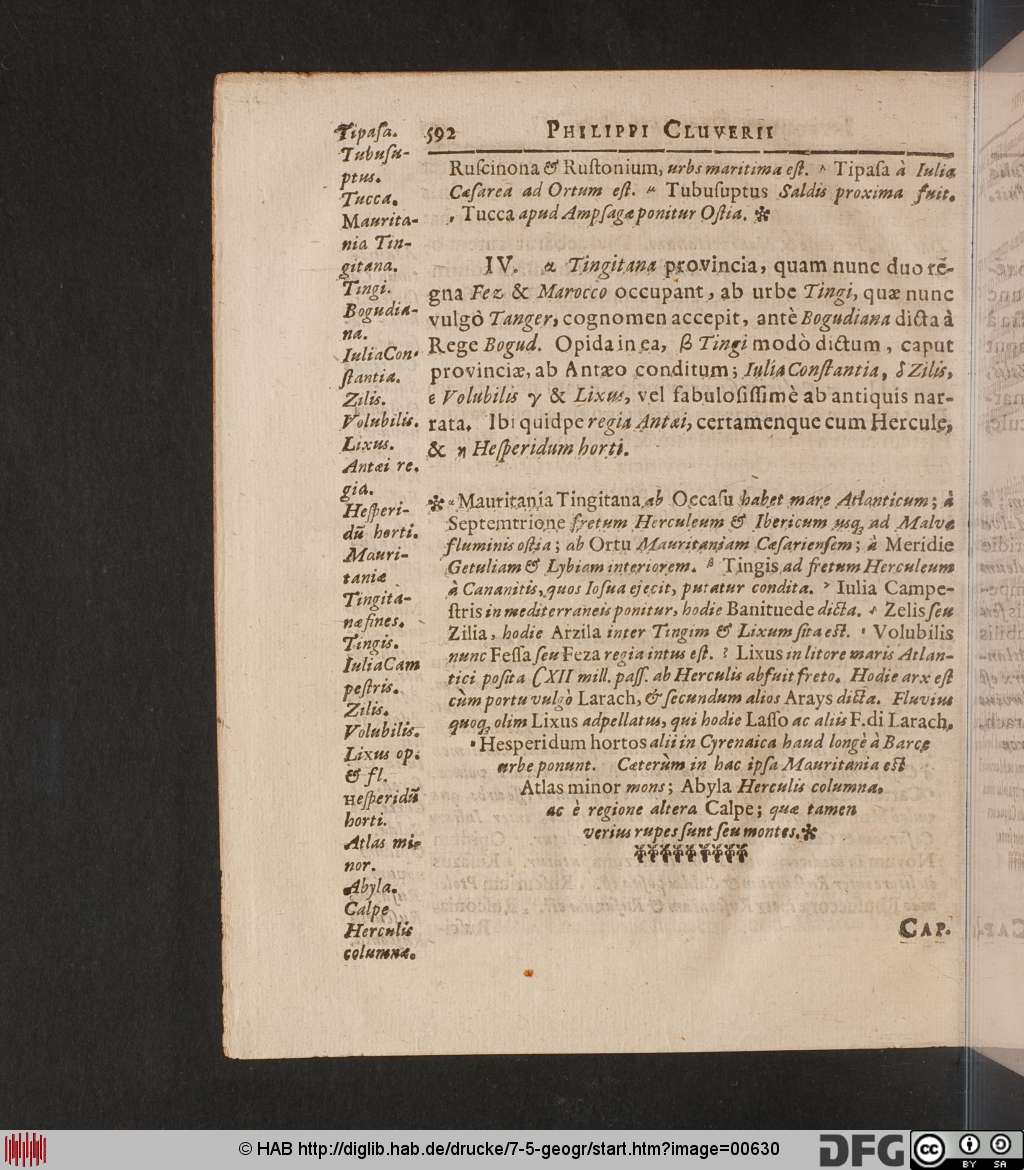 592 PHILIPPI CLUVERII
Ruſcinona & Ruſtonium, urbs maritima eſt. λ Tipaſa à Iulia
Cæſarea ad Ortum eſt. μ Tubuſuptus Saldis proxima fuit.
Tucca apud Ampſagæ ponitur Oſtia. ✻
IV. α Tingitana provincia, quam nunc duo rē-
gna Fez & Marocco occupant, ab urbe Tingi, quæ nunc
vulgò Tanger, cognomen accepit, antè Bogudiana dicta à
Rege Bogud. Opida in ea, β Tingi modò dictum, caput
provinciæ, ab Antæo conditum; Iulia Conſtantia, δ Zilis,
ε Volubilis γ & Lixus, vel fabuloſiſſimè ab antiquis nar-
rata. Ibi quidpe regia Antæi, certamenque cum Hercule,
& η Heſperidum horti.
✻ α Mauritania Tingitana ab Occaſu habet mare Atlanticum; à
Septemtrione fretum Herculeum & Ibericum uſq; ad Malvæ
fluminis oſtia; ab Ortu Mauritaniam Cæſarienſem; à Meridie
Getuliam & Lybiam interiorem. β Tingis ad fretum Herculeum
à Cananitis, quos Ioſua ejecit, putatur condita. γ Iulia Campe-
ſtris in mediterraneis ponitur, hodie Banituede dicta. δ Zelis ſeu
Zilia, hodie Arzila inter Tingim & Lixum ſita eſt. ε Volubilis
nunc Feſſa ſeu Feza regia intus eſt. ζ Lixus in litore maris Atlan-
tici poſita CXII mill. paſſ. ab Herculis abfuit freto. Hodie arx eſt
cùm portu vulgò Larach, & ſecundum alios Arays dicta. Fluvius
quoq; olim Lixus adpellatus, qui hodie Laſſo ac aliis F. di Larach.
Hesperidum hortos alii in Cyrenaica haud longè à Barce
urbe ponunt. Cæterùm in hac ipſa Mauritania eſt
Atlas minor mons; Abyla Herculis columna.
ac è regione altera Calpe; quæ tamen
verius rupes ſunt ſeu montes. ✻
CAP.
Tipaſa.
Tubuſu-
ptus.
Tucca.
Maurita-
nia Tin-
gitana.
Tingi.
Bogudia-
na.
Iulia Con-
ſtantia.
Zilis.
Volubilis.
Lixus.
Antæi re-
gia.
Heſperi-
dū horti.
Mauri-
taniæ
Tingita-
næ fines.
Tingis.
Iulia Cam
peſtris.
Zilis.
Volubilis.
Lixus op.
& fl.
Heſperidū
horti.
Atlas mi-
nor.
Abyla.
Calpe
Herculis
columnæ.
© HAB http://diglib.hab.de/drucke/7-5-geogr/start.htm?image=00630
DFG
cc
BY SA